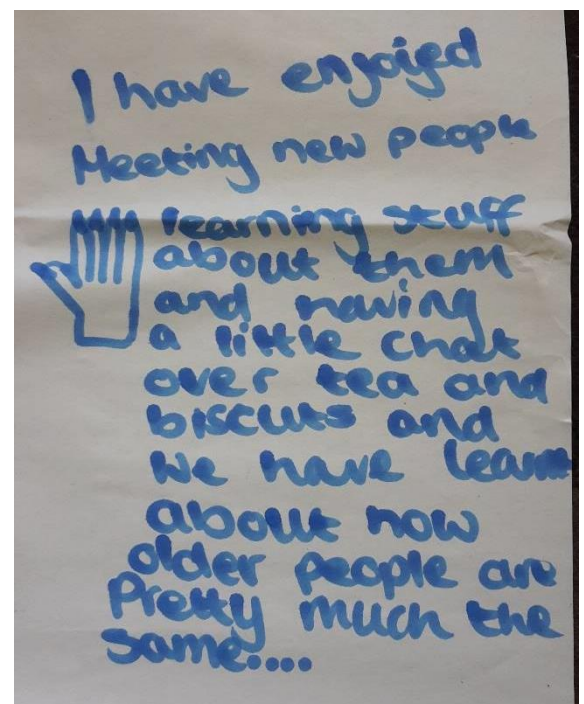 I have enjoyed
Meeting new people
learning stuff
about them
and having
a little chat
over tea and
biscuts and
We have learnt
about how
older people are
Pretty much the
same....